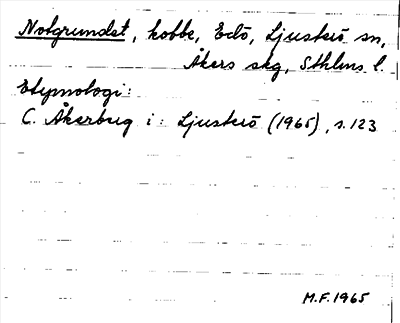 Notgrundet, kobbe, Edö, Ljusterö sn,
Åkers skg, Sthlms l.
Etymologi:
C. Åkerberg i: Ljusterö (1965), s. 123
M.F. 1965